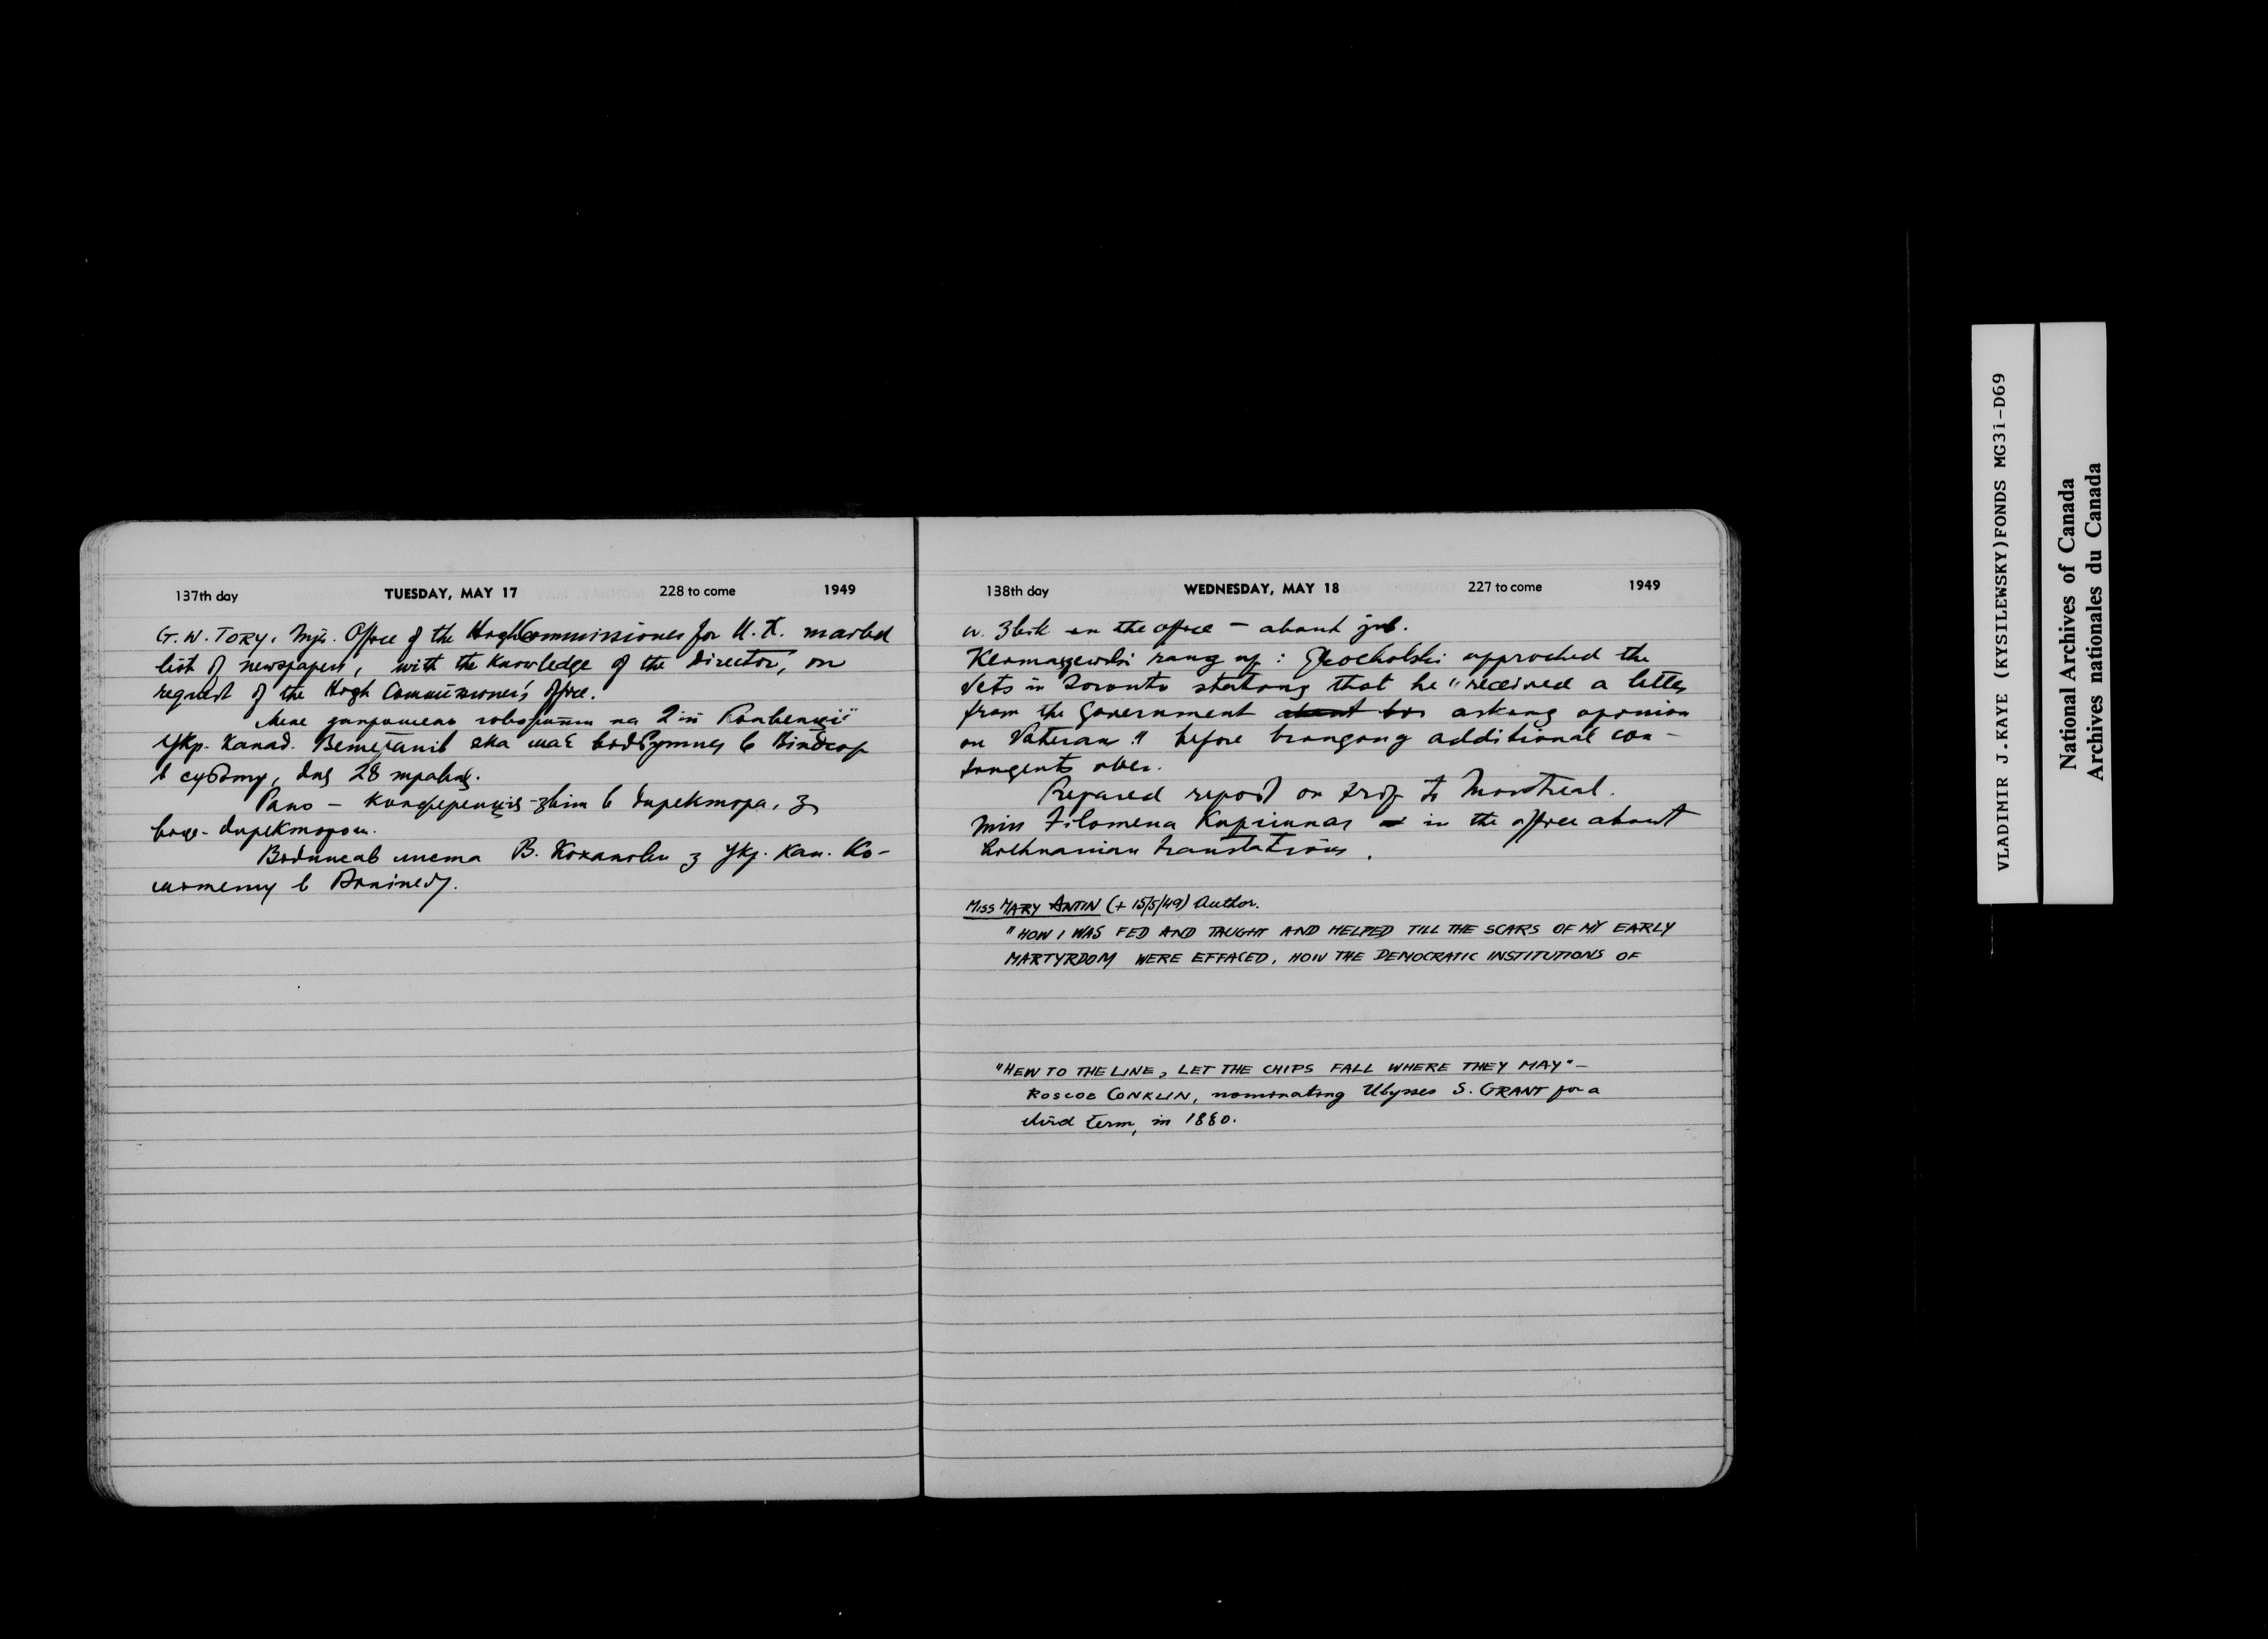 137th day TUESDAY, MAY 17 228 to come 1949
G. W. TORY. Office of the High Commissioner for U. K. marked
list of newspapers, with the knowledge of the Director, on
request of the High Commissioner's office.
Мене запрошено говорити на 2ій Конвенції
Укр. Канад. Ветеранів яка має відбутися в Віндсор
в суботу, дня 28 травня.
Рано – конференція-звіт в директора, з
віце-директором.
Відписав листа В. Коханови з Укр. Кан. Ко-
мітету в Вініпегу.
138th day WEDNESDAY, MAY 18 227 to come 1949
in the office – about job.
rang up: approched the
Vets in Toronto stating that he "received a letter
from the Government about asking opinion
on Veteran" before bringing additional con-
tingents over.
Prepared report on trip to Montreal.
Miss Filomena in the office about
Lithuanian translations.
MISS MARY ANTIN (+ 15/5/49) Author.
"HOW I WAS FED AND TAUGHT AND HELPED TILL THE SCARS OF MY EARLY
MARTYRDOM WERE EFFACED, HOW THE DEMOCRATIC INSTITUTIONS OF
"HEW TO THE LINE, LET THE CHIPS FALL WHERE THEY MAY" –
ROSCOE CONKLIN, nominating Ulysses S. GRANT for a
third term, in 1880.
VLADIMIR J.KAYE (KYSILEWSKY)FONDS MG31-D69
National Archives of Canada
Archives nationales du Canada